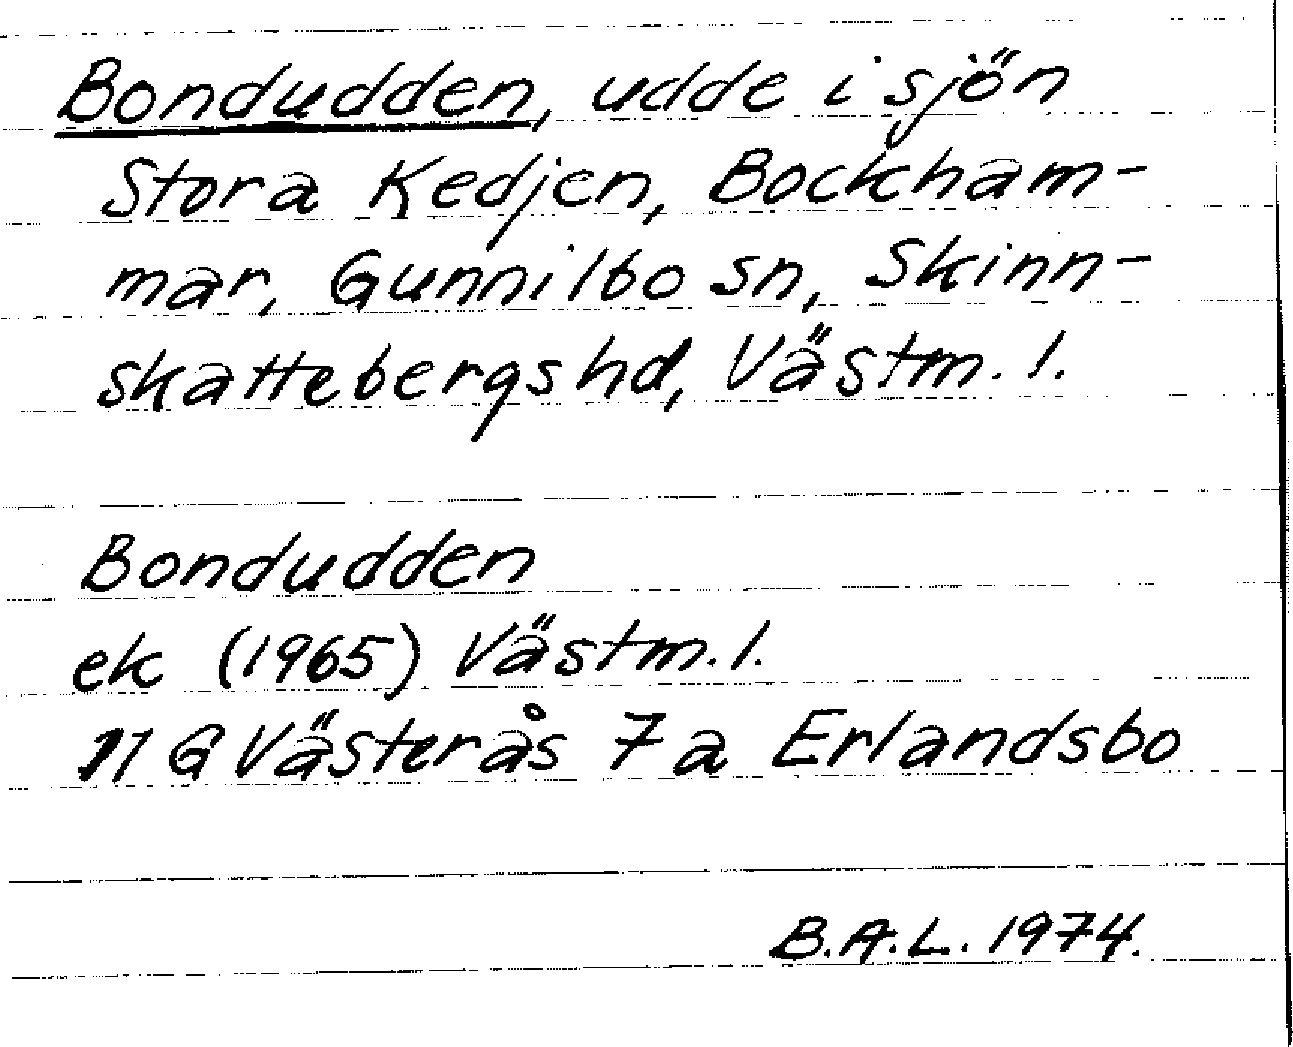 Bondudden, udde i sjön
Stora Kedjen, Bockham-
mar, Gunnilbo sn, Skinn-
skattebergs hd, Västm. l.
Bondudden
ek (1965) Västm. l.
11 G Västerås 7 a Erlandsbo
B.A.L. 1974.